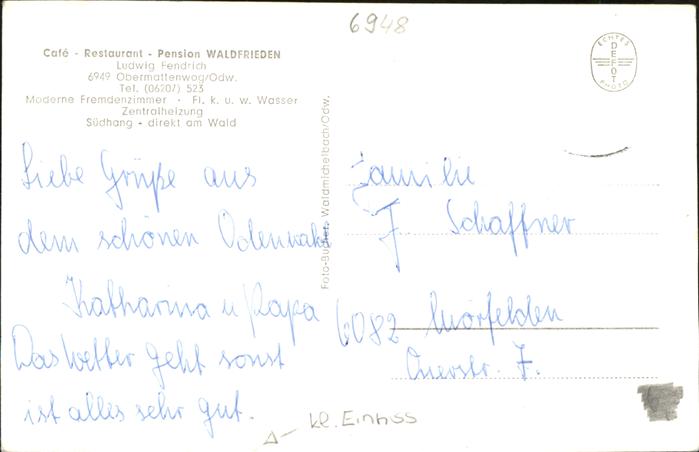 6948
Café - Restaurant - Pension WALDFRIEDEN
Ludwig Fendrich
6949 Obermattenwog/Odw.
Tel. (06207) 523
Moderne Fremdenzimmer · Fl. k. u. w. Wasser
Zentralheizung
Südhang - direkt am Wald
ECHTES
DEFOT
PHOTO
Foto-Bucher, Waldmichelbach/Odw.
Liebe Grüße aus
dem schönen Odenwald
Katharina u Papa
Das Wetter geht sonst
ist alles sehr gut.
Familie
J. Schaffner
6082 Mörfelden
Querstr. 7.
kl. Einriss